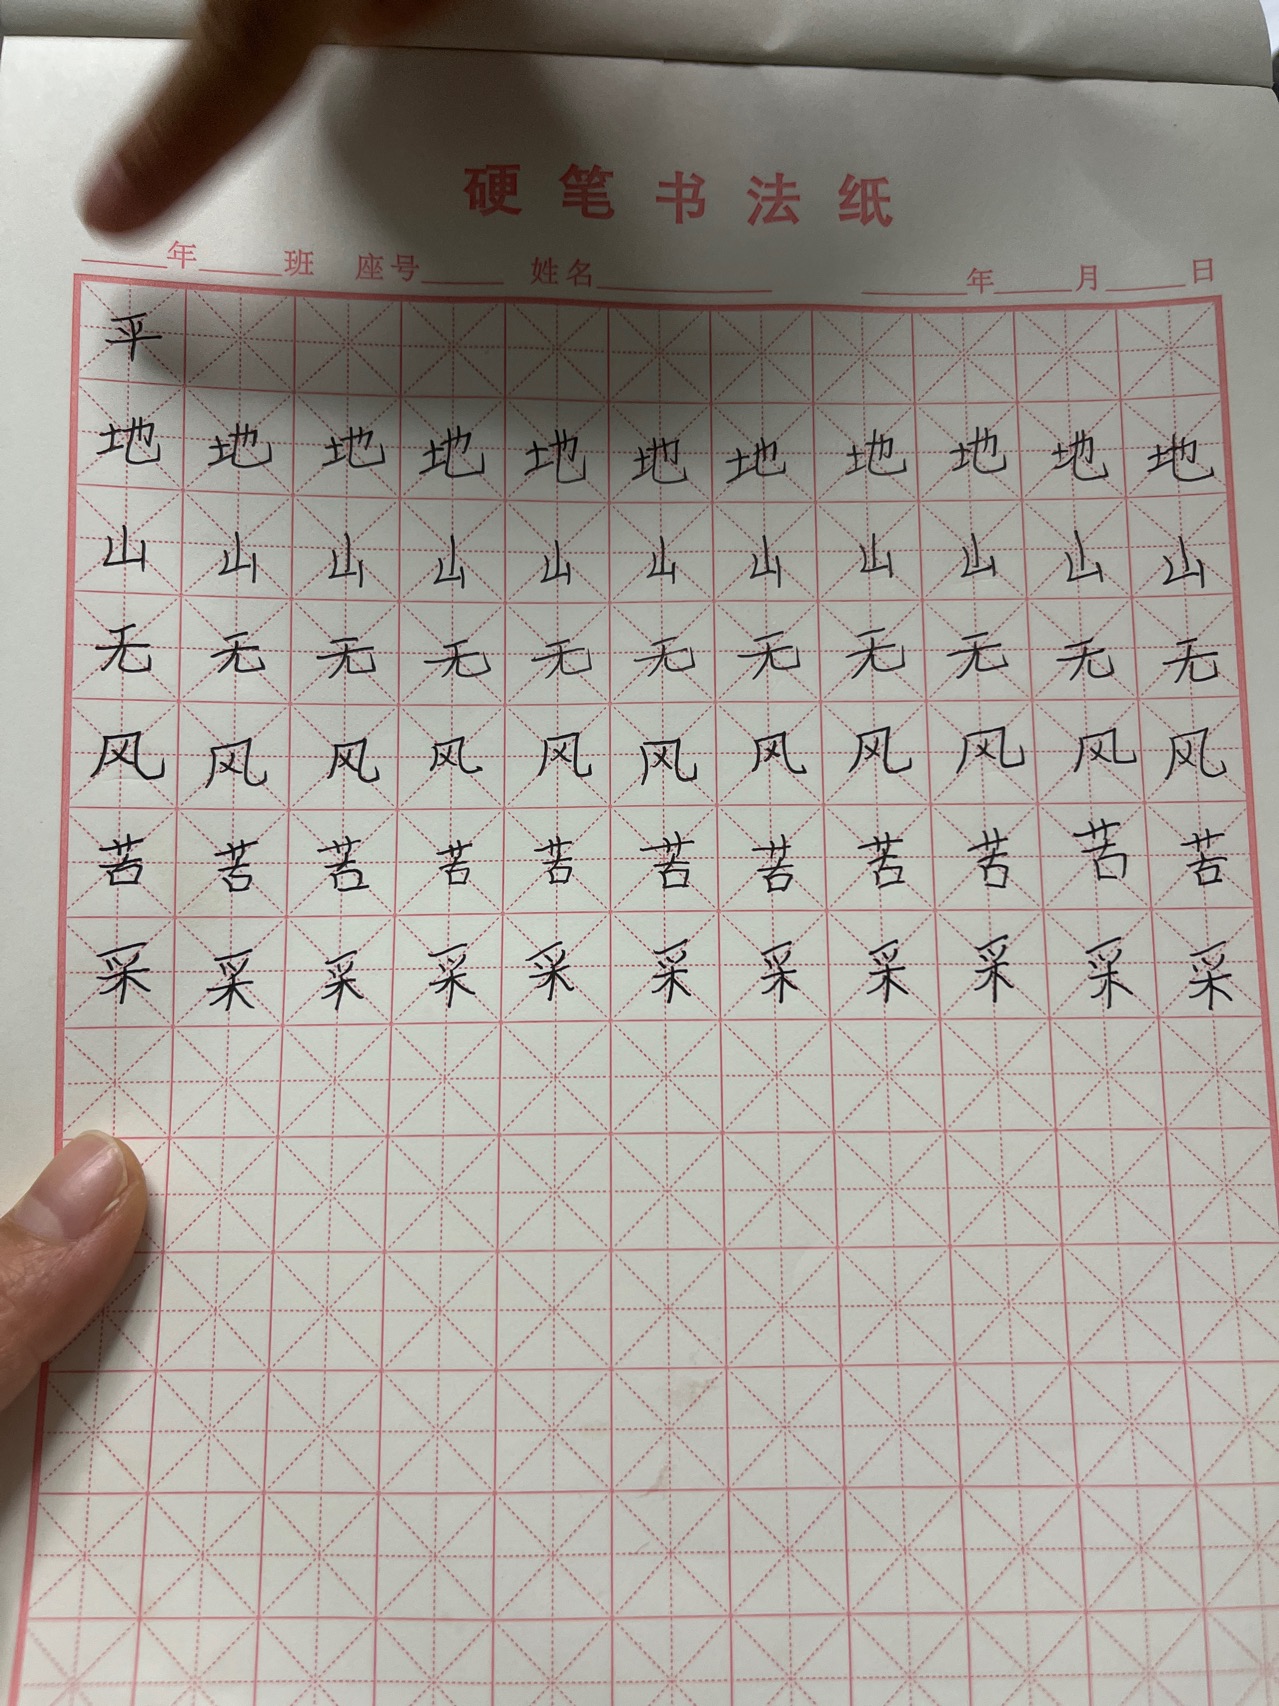 硬笔书法纸
年 班 座号 姓名 年 月 日
平
地 地 地 地 地 地 地 地 地 地 地
山 山 山 山 山 山 山 山 山 山 山
无 无 无 无 无 无 无 无 无 无 无
风 风 风 风 风 风 风 风 风 风 风
苦 苦 苦 苦 苦 苦 苦 苦 苦 苦 苦
采 采 采 采 采 采 采 采 采 采 采